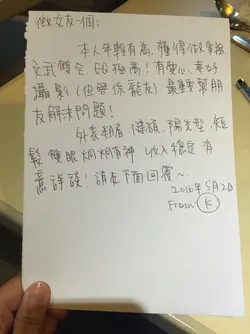 徵女友一個:
本人年輕有為, 懂得做家務
文武雙全, EQ極高! 有愛心, 喜好
攝影 (但唔係龍友) 最重要幫朋
友解決問題!
外表斯文, 健碩, 陽光型, 短
髮 雙眼炯炯有神 收入穩定 有
意詳談! 請在下面回覆~
2016年5月2日
From K